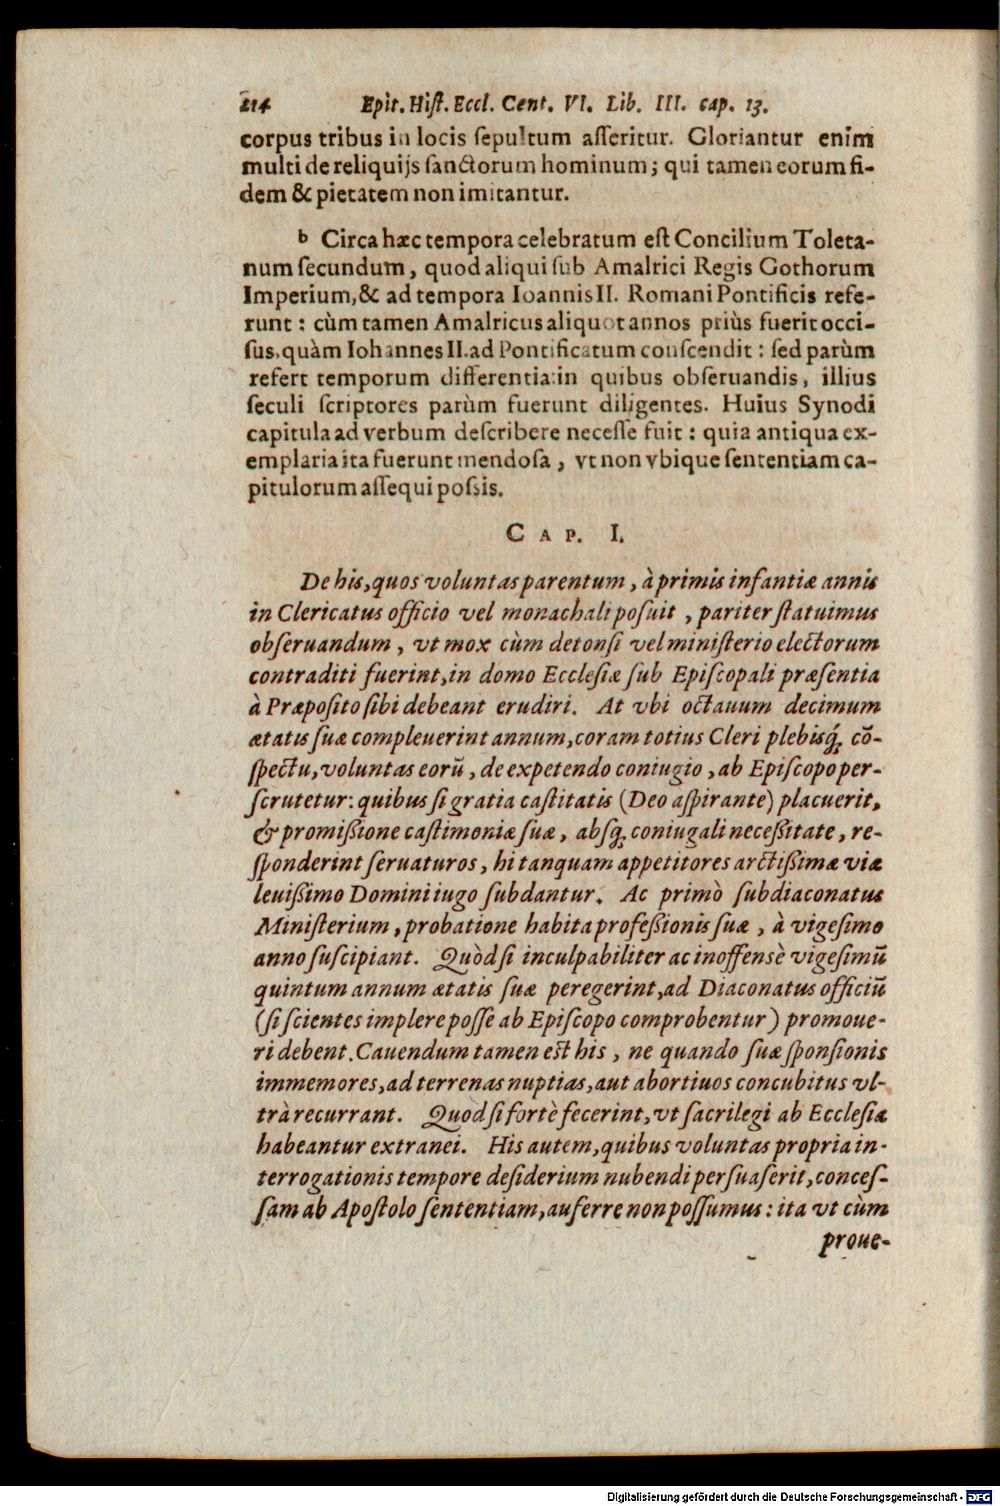 214 Epit. Hiſt. Eccl. Cent. VI. Lib. III. cap. 13.
corpus tribus in locis ſepultum aſſeritur. Gloriantur enim
multi de reliquijs ſanctorum hominum; qui tamen eorum fi-
dem & pietatem non imitantur.
b Circa hæc tempora celebratum eſt Concilium Toleta-
num ſecundum, quod aliqui ſub Amalrici Regis Gothorum
Imperium, & ad tempora Ioannis II. Romani Pontificis refe-
runt: cùm tamen Amalricus aliquot annos priùs fuerit occi-
ſus, quàm Iohannes II. ad Pontificatum conſcendit: ſed parùm
refert temporum differentia: in quibus obſeruandis, illius
ſeculi ſcriptores parùm fuerunt diligentes. Huius Synodi
capitula ad verbum deſcribere neceſſe fuit: quia antiqua ex-
emplaria ita fuerunt mendoſa, vt non vbique ſententiam ca-
pitulorum aſſequi poſsis.
CAP. I.
De his, quos voluntas parentum, à primis infantiæ annis
in Clericatus officio vel monachali poſuit, pariter ſtatuimus
obſeruandum, vt mox cùm detonſi vel miniſterio electorum
contraditi fuerint, in domo Eccleſiæ ſub Epiſcopali præſentia
à Præpoſito ſibi debeant erudiri. At vbi octauum decimum
ætatis ſuæ compleuerint annum, coram totius Cleri plebisq́; cõ-
ſpectu, voluntas eorũ, de expetendo coniugio, ab Epiſcopo per-
ſcrutetur: quibus ſi gratia caſtitatis (Deo aſpirante) placuerit,
& promißione caſtimoniæ ſuæ, abſq; coniugali neceßitate, re-
ſponderint ſeruaturos, hi tanquam appetitores arctißimæ viæ
leuißimo Domini iugo ſubdantur. Ac primò ſubdiaconatus
Miniſterium, probatione habita profeßionis ſuæ, à vigeſimo
anno ſuſcipiant. Quòd ſi inculpabiliter ac inoffensè vigeſimũ
quintum annum ætatis ſuæ peregerint, ad Diaconatus officiũ
(ſi ſcientes implere poſſe ab Epiſcopo comprobentur) promoue-
ri debent. Cauendum tamen eſt his, ne quando ſuæ ſponſionis
immemores, ad terrenas nuptias, aut abortiuos concubitus vl-
trà recurrant. Quòd ſi fortè fecerint, vt ſacrilegi ab Eccleſia
habeantur extranei. His autem, quibus voluntas propria in-
terrogationis tempore deſiderium nubendi perſuaſerit, conceſ-
ſam ab Apoſtolo ſententiam, auferre non poſſumus: ita vt cùm
proue-
Digitalisierung gefördert durch die Deutsche Forschungsgemeinschaft - DFG